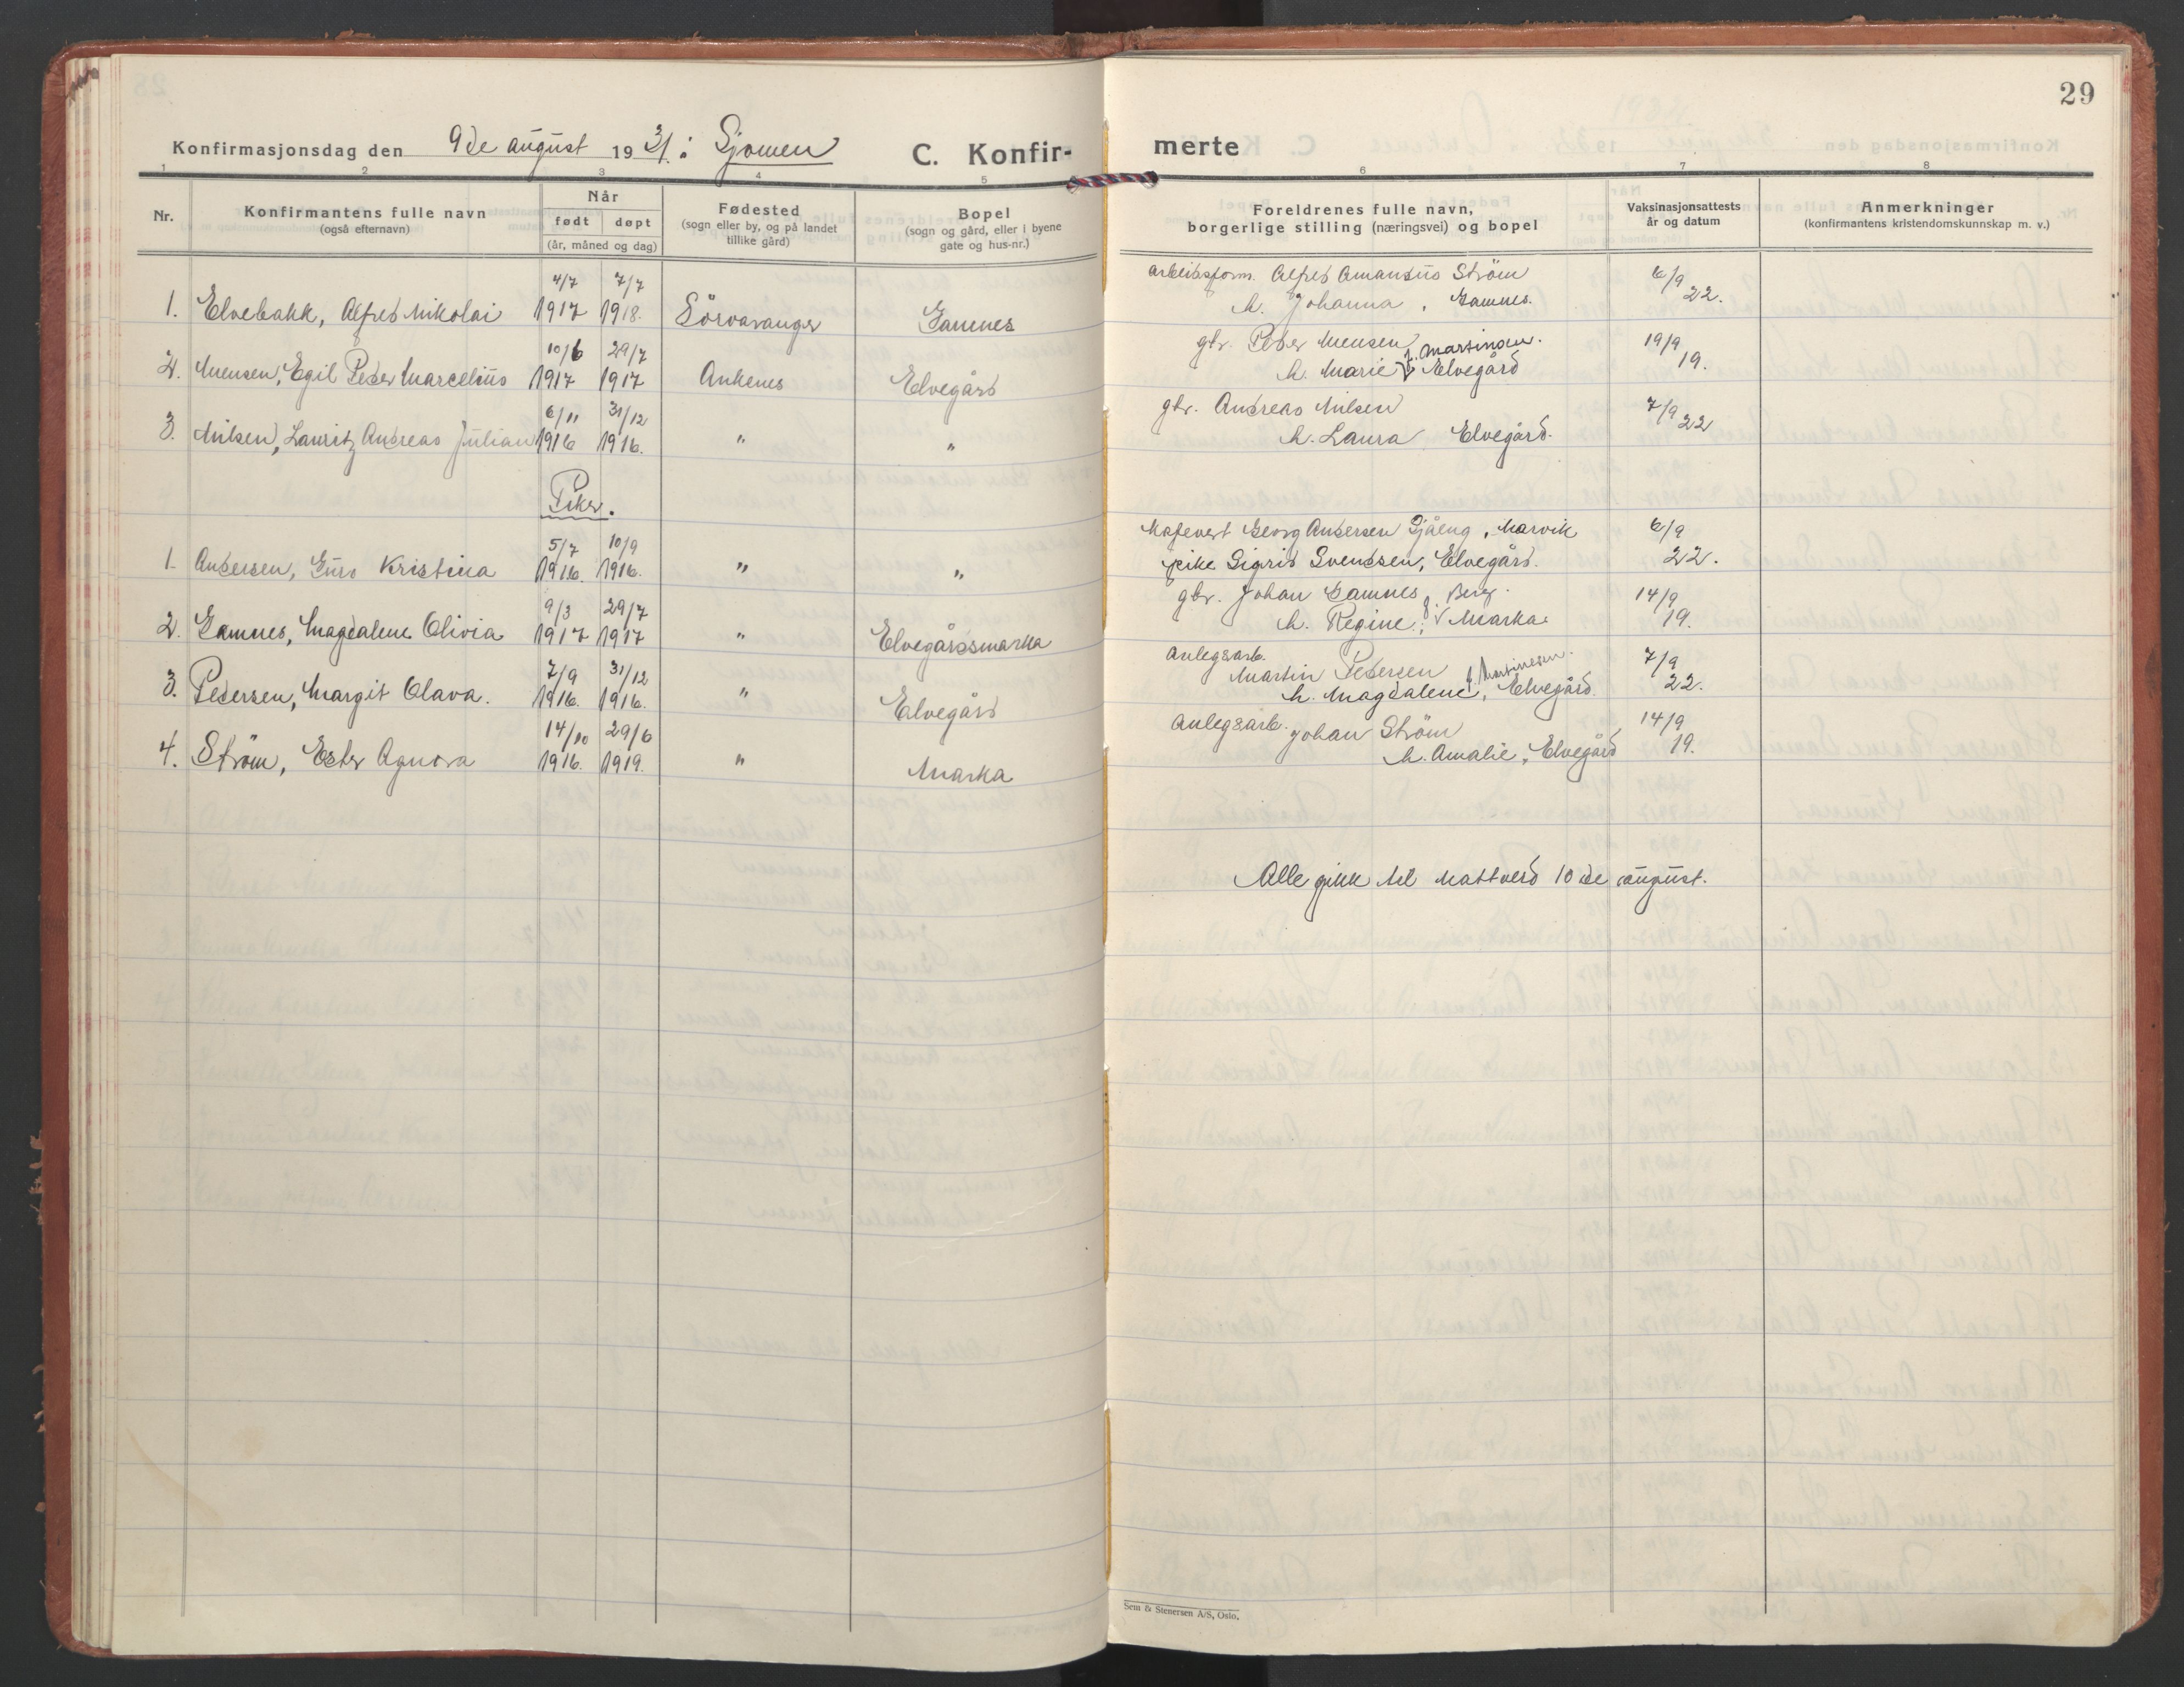 29
Konfirmasjonsdag den 9de august 1931 i Sjomen C. Konfir-merte
1 2 3 4 5 6 7 8
Nr.
Konfirmantens fulle navn
(også efternavn)
Når
født døpt
(år, måned og dag)
Fødested
(sogn eller by, og på landet
tillike gård)
Bopel
(sogn og gård, eller i byene
gate og hus-nr.)
Foreldrenes fulle navn,
borgerlige stilling (næringsvei) og bopel
Vaksinasjonsattests
år og datum
Anmerkninger
(konfirmantens kristendomskunnskap m. v.)
4/7 7/7 arbeidsform. Alfred Amandus Ström 6/9
1. Elvebakk, Alfred Nikolai 1917 1918. Sörvaranger Gamnes h. Johanna, Gamnes. 22.
10/6 29/7 gbr. Peder Mensen f. Martinsen. 19/9
2. Mensen, Egil Peder Marcelius 1917 1917 Ankenes Elvegård h. Marie, Elvegård 19.
6/11 31/12 gbr. Andreas Nilsen 7/9
3. Nilsen, Lauritz Andreas Julian 1916 1916. " " h. Laura Elvegård. 22
Piker.
5/7 10/9 Georg Andersen Sjåeng, Narvik 6/9
1. Andersen, Guro Kristina 1916. 1916. " " pike Sigrid Svendsen, Elvegård. 22.
9/3 29/7 gbr. Johan Gamnes f. Berg. 14/9
2. Gamnes, Magdalene Olivia 1917 1917 " Elvegårdsmarka h. Regine, Marka. 19.
7/9 31/12 Anlegsarb. Martin Pedersen f. Martinesen. 7/9
3. Pedersen, Margit Olava. 1916. 1916. " Elvegård h. Magdalene, Elvegård. 22.
14/10 29/6 Anlegsarb. Johan Ström 14/9
4. Ström, Ester Agnora 1916. 1919. " Marka h. Amalie, Elvegård 19.
Alle gikk til nattverd 10de august.
Sem & Stenersen A/S, Oslo.